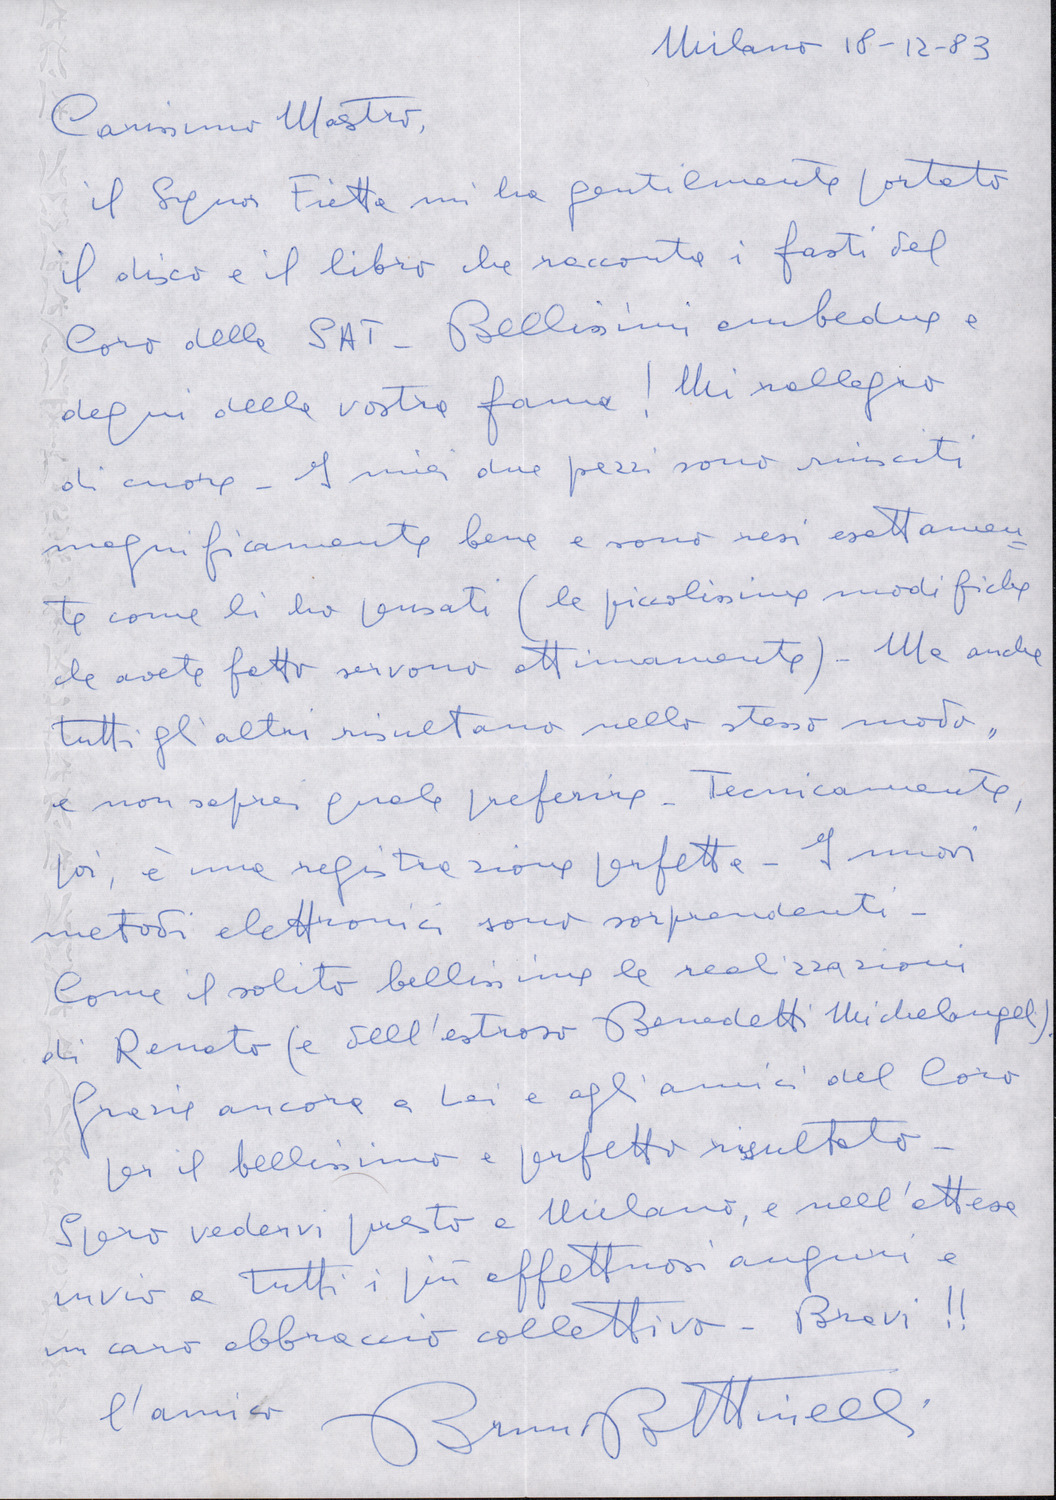 Milano 18-12-83
Carissimo Mastro,
il Signor Fietta mi ha gentilmente portato
il disco e il libro che racconta i fasti del
Coro della SAT - Bellissimi ambedue e
degni della vostra fama! Mi rallegro
di cuore - I miei due pezzi sono riusciti
magnificamente bene e sono resi esattamen=
te come li ho pensati (le piccolissime modifiche
che avete fatto servono ottimamente) - Ma anche
tutti gli altri risultano nello stesso modo,
e non saprei quale preferire - Tecnicamente,
poi, è una registrazione perfetta - I nuovi
metodi elettronici sono sorprendenti -
Come il solito bellissime le realizzazioni
di Renato (e dell'estroso Benedetti Michelangeli).
Grazie ancora a Lei e agli amici del Coro
per il bellissimo e perfetto risultato -
Spero vedervi presto a Milano, e nell'attesa
invio a tutti i più affettuosi auguri e
un caro abbraccio collettivo - Bravi !!
l'amico Bruno Bettinelli